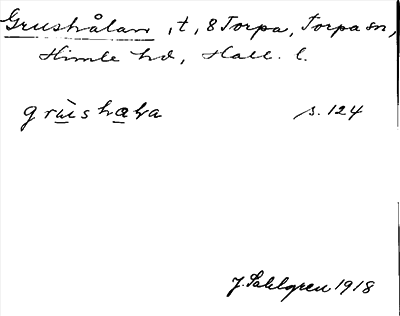 Grushålan, t, 8 Torpa, Torpa sn,
Himle hd, Hall. l.
s. 124
J. Sahlgren 1918